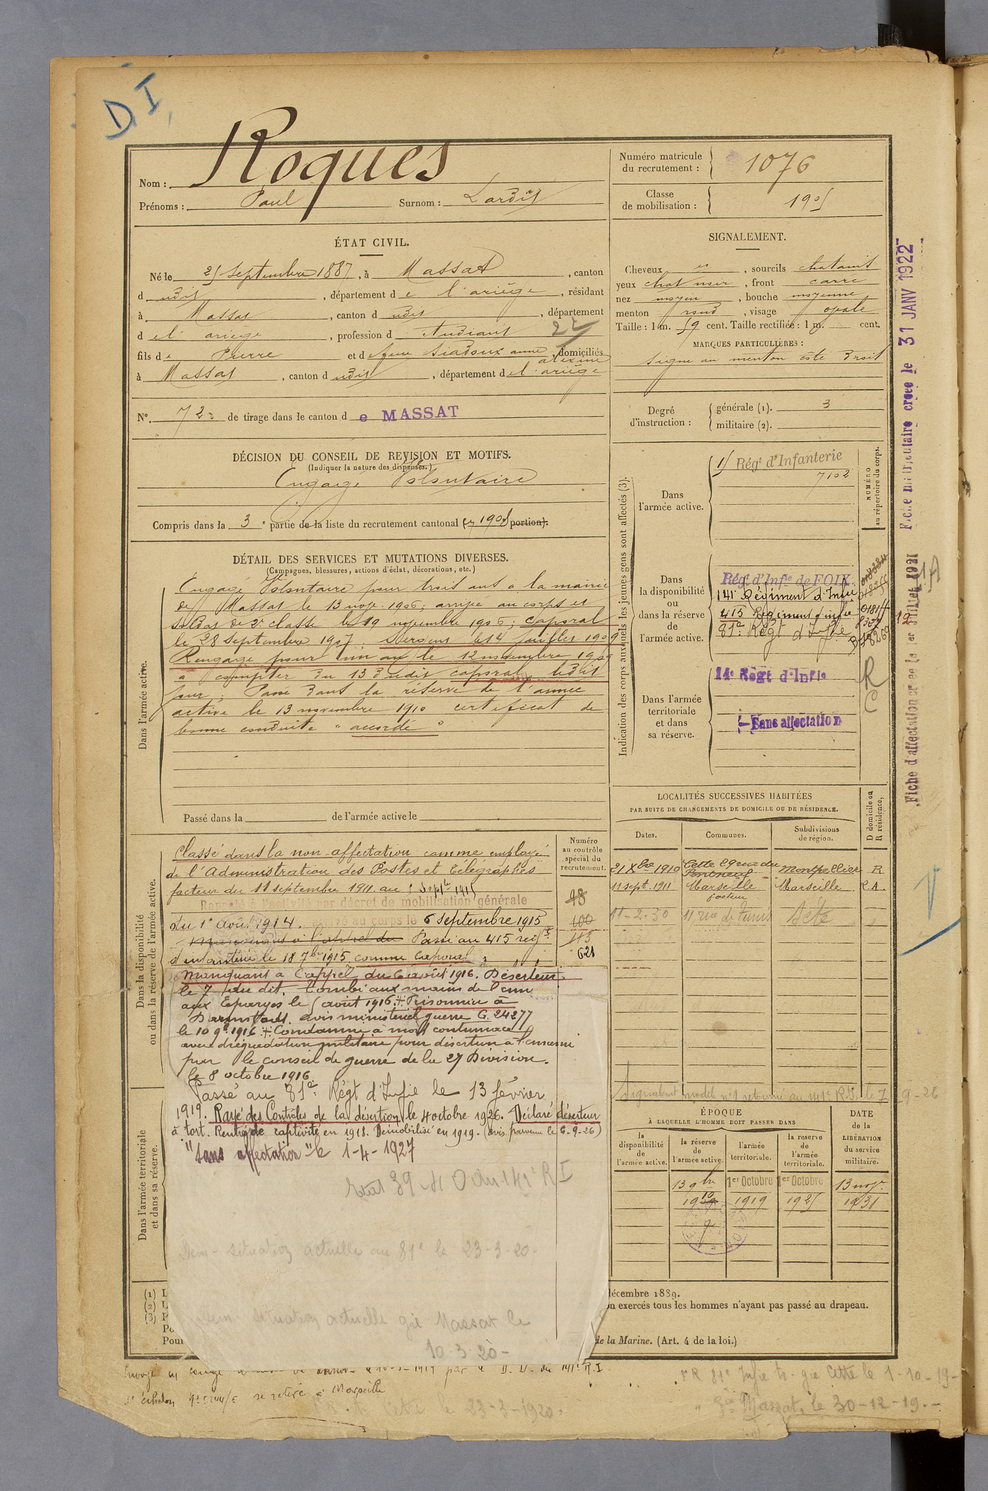 DI
Nom : Roques
Prénoms : Paul Surnom : Lardit
Numéro matricule du recrutement : 1076
Classe de mobilisation : 1905
ÉTAT CIVIL.
Né le 25 septembre 1887, à Massat, canton
dudit, département de l'ariège, résidant
à Massat, canton dudit, département
de l'ariège, profession d'étudiant
fils de Pierre et de feue Siadoux anne, domiciliés
à Massat, canton dudit, département de l'ariège
N° 72 de tirage dans le canton de MASSAT
SIGNALEMENT.
Cheveux , sourcils chatains
yeux chat noir, front carré
nez moyen, bouche moyenne
menton rond, visage ovale
Taille : 1 m. 59 cent. Taille rectifiée : 1 m. cent.
MARQUES PARTICULIÈRES :
signe au menton côté droit
Degré d'instruction :
générale (1). 3
militaire (2).
DÉCISION DU CONSEIL DE REVISION ET MOTIFS.
(Indiquer la nature des dispenses.)
Engagé Volontaire
Compris dans la 3e partie de la liste du recrutement cantonal ( portion).
DÉTAIL DES SERVICES ET MUTATIONS DIVERSES.
(Campagnes, blessures, actions d'éclat, décorations, etc.)
Dans l'armée active.
Engagé Volontaire pour trois ans à la mairie
de Massat le 13 nov. 1906, arrivé au corps et
soldat de 2e classe le 19 novembre 1906; caporal
le 28 septembre 1907 Sergent le 14 juillet 1909
Rengagé pour un an le 12 novembre 1909
à compter du 13 dudit caporal ledit
jour; Passé dans la réserve de l'armée
active le 13 novembre 1910 certificat de
bonne conduite "accordé"
Passé dans la de l'armée active le
Indication des corps auxquels les jeunes gens sont affectés (3).
NUMÉRO au répertoire du corps.
Dans l'armée active.
Régt d'Infanterie
7102
Dans la disponibilité ou dans la réserve de l'armée active.
Régt d'Infie de FOIX
141e Régiment d'Infie
415 Régiment d'infie
81e Régt d'Infie
Dans l'armée territoriale et dans sa réserve.
14e Régt d'Infie
Sans affectation
R
C
Fiche matriculaire créée le 31 JANV 1922
LOCALITÉS SUCCESSIVES HABITÉES
PAR SUITE DE CHANGEMENTS DE DOMICILE OU DE RÉSIDENCE.
Dates. Communes. Subdivisions de région. D domicile ou R résidence.
21 Xbre 1910 Cette Montpellier R
11 sept. 1911 Marseille facteur Marseille R.A.
11-2-30 11 rue de Tunis Sète
Numéro au contrôle spécial du recrutement.
48
100
113
621
Dans la disponibilité ou dans la réserve de l'armée active.
Classé dans la non affectation comme employé
de l'Administration des Postes et Télégraphes
facteur du 11 septembre 1911 au 1 Septe 1915
Rappelé à l'activité par décret de mobilisation générale
du 1er août 1914. Arrivé au corps le 6 septembre 1915
Passé au 415 régt
d'infanterie le 18 7bre 1915 comme Caporal
Manquant à l'appel du 6 août 1916. Déserteur
le 7 du dit. Tombé aux mains de l'en.
aux Eparges le 6 août 1916. + Prisonnier à
Darmstadt. avis ministériel guerre G. 24277
le 10 9bre 1916 + Condamné à mort contumace
avec dégradation militaire pour désertion à l'ennemi
par le conseil de guerre de la 27 Division.
le 8 octobre 1916
Passé au 81e Régt d'Infie le 13 février
1919. Rayé des Contrôles de la désertion le 4 octobre 1926. Déclaré déserteur
à tort. Rentré de captivité en 1918. Démobilisé en 1919 - (avis parvenu le 6-9-26)
"Sans affectation" le 1-4-1927
Dans l'armée territoriale et dans sa réserve.
Dem. situation actuelle au 81e le 23-3-20-
Dem. situation actuelle gie Massat le
10-3-20-
ÉPOQUE
À LAQUELLE L'HOMME DOIT PASSER DANS
la disponibilité de l'armée active. la réserve de l'armée active. l'armée territoriale. la réserve de l'armée territoriale.
DATE de la LIBÉRATION du service militaire.
13 9bre 1er Octobre 1er Octobre 13 nov.
1910 1919 1925 1931
décembre 1889.
on exercés tous les hommes n'ayant pas passé au drapeau.
de la Marine. (Art. 4 de la loi.)
(1) L
(2) L
(3)
se retire à Marseille
81e Infie tr. gie Cette le 1-10-19-
gie Massat, le 30-12-19.-
Cette le 23-3-1920.